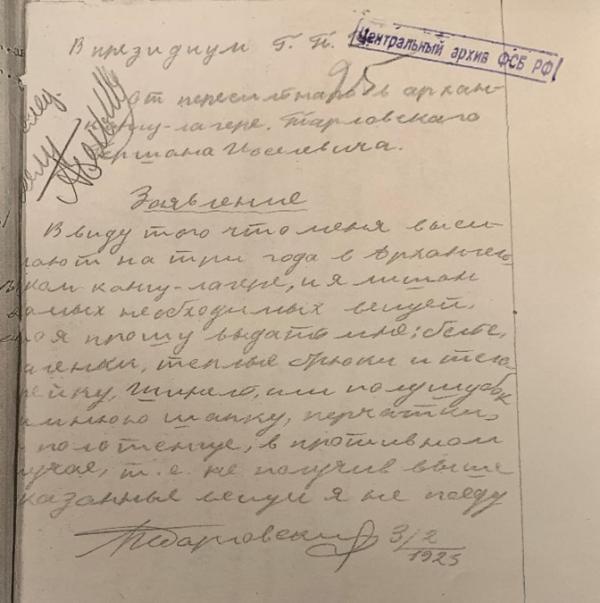 В президиум Г. П.
Центральный архив ФСБ РФ
95
от пересыльнаго в архан-
концу-лагере. Тарловскаго
ершона Иоселевича.
Заявление
Ввиду того что меня высы-
лают на три года в Архангель-
ском концу-лагере, и я лишон
самых необходимых вещей,
прошу выдать мне: белье,
теплые брюки и тело-
рейку, шинель, или полушубок
имнюю шапку, перчатки,
полотенце, в противном
лучае, т.е. не получив выше
казанные вещи я не поеду
3/2
1925